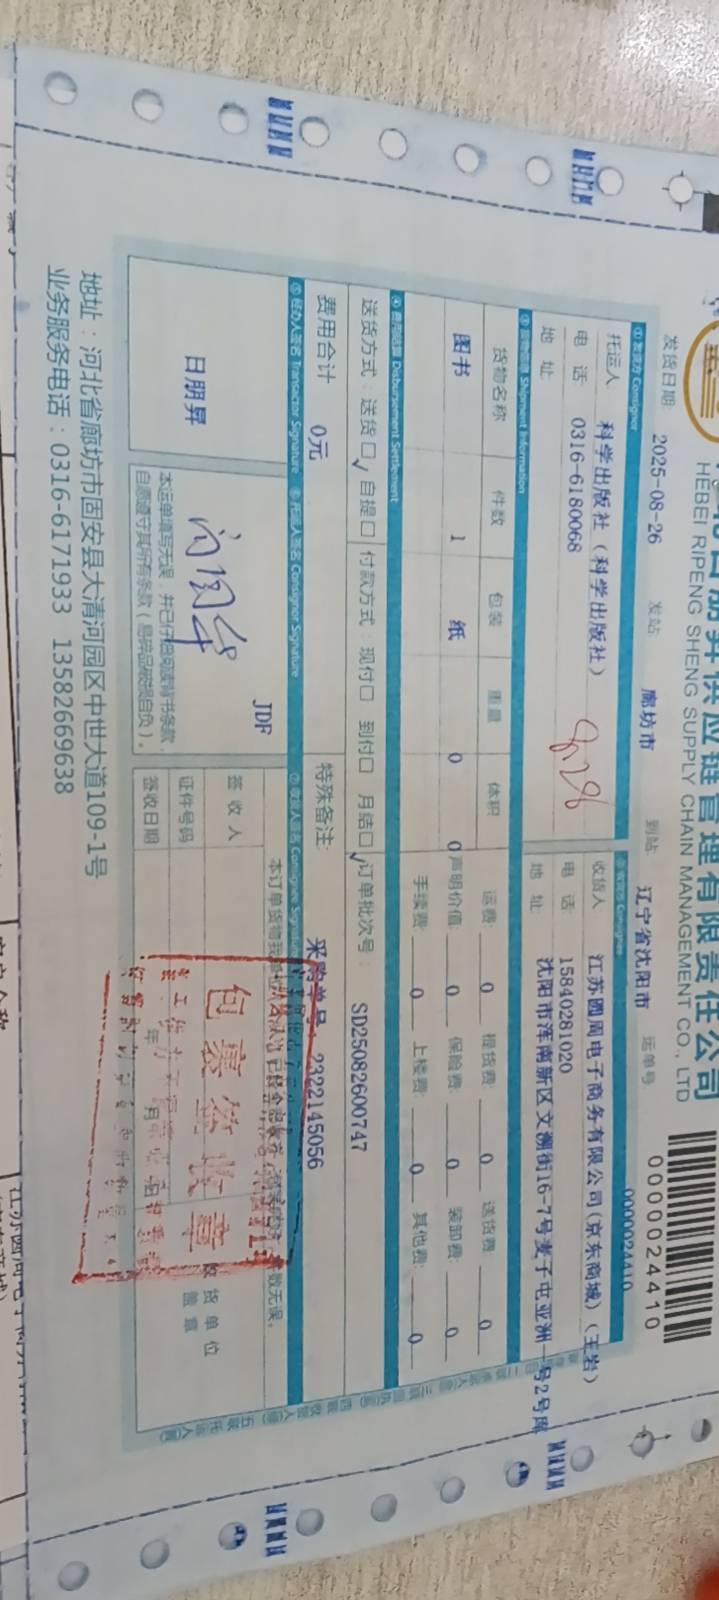 日朋昇供应链管理有限责任公司
HEBEI RIPENG SHENG SUPPLY CHAIN MANAGEMENT CO., LTD
0000024410
发货日期 2025-08-26 发站 廊坊市 到站 辽宁省沈阳市 运单号 0000024410
① 发货方 Consignor
托运人 科学出版社（科学出版社）
电 话 0316-6180068
地 址
8.28
② 收货方 Consignee
收货人 江苏圆周电子商务有限公司(京东商城)(王岩)
电 话 15840281020
地 址 沈阳市浑南新区文溯街16-7号麦子屯亚洲一号2号库
③ 货物信息 Shipment Information
货物名称 件数 包装 重量 体积
图书 1 纸 0 0
运费: 0 提货费: 0 送货费: 0
声明价值: 0 保险费: 0 装卸费: 0
手续费: 0 上楼费: 0 其他费: 0
④ 费用结算 Disbursement Settlement
送货方式：送货□✓自提□ 付款方式：现付□ 到付□ 月结□✓ 订单批次号： SD25082600747
费用合计 0元 特殊备注: 采购单号：2322145056
⑤ 经办人签名 Transactor Signature ⑥ 托运人签名 Consignor Signature ⑦ 收货人签名 Consignee Signature
日朋昇
JDF
本运单填写无误，并已仔细阅读背书条款，
自愿遵守其所有条款（易碎品破损自负）。
签 收 人
证件号码
签收日期 年 月
收货单位
盖 章
包裹签收章
地址：河北省廊坊市固安县大清河园区中世大道109-1号
业务服务电话：0316-6171933 13582669638